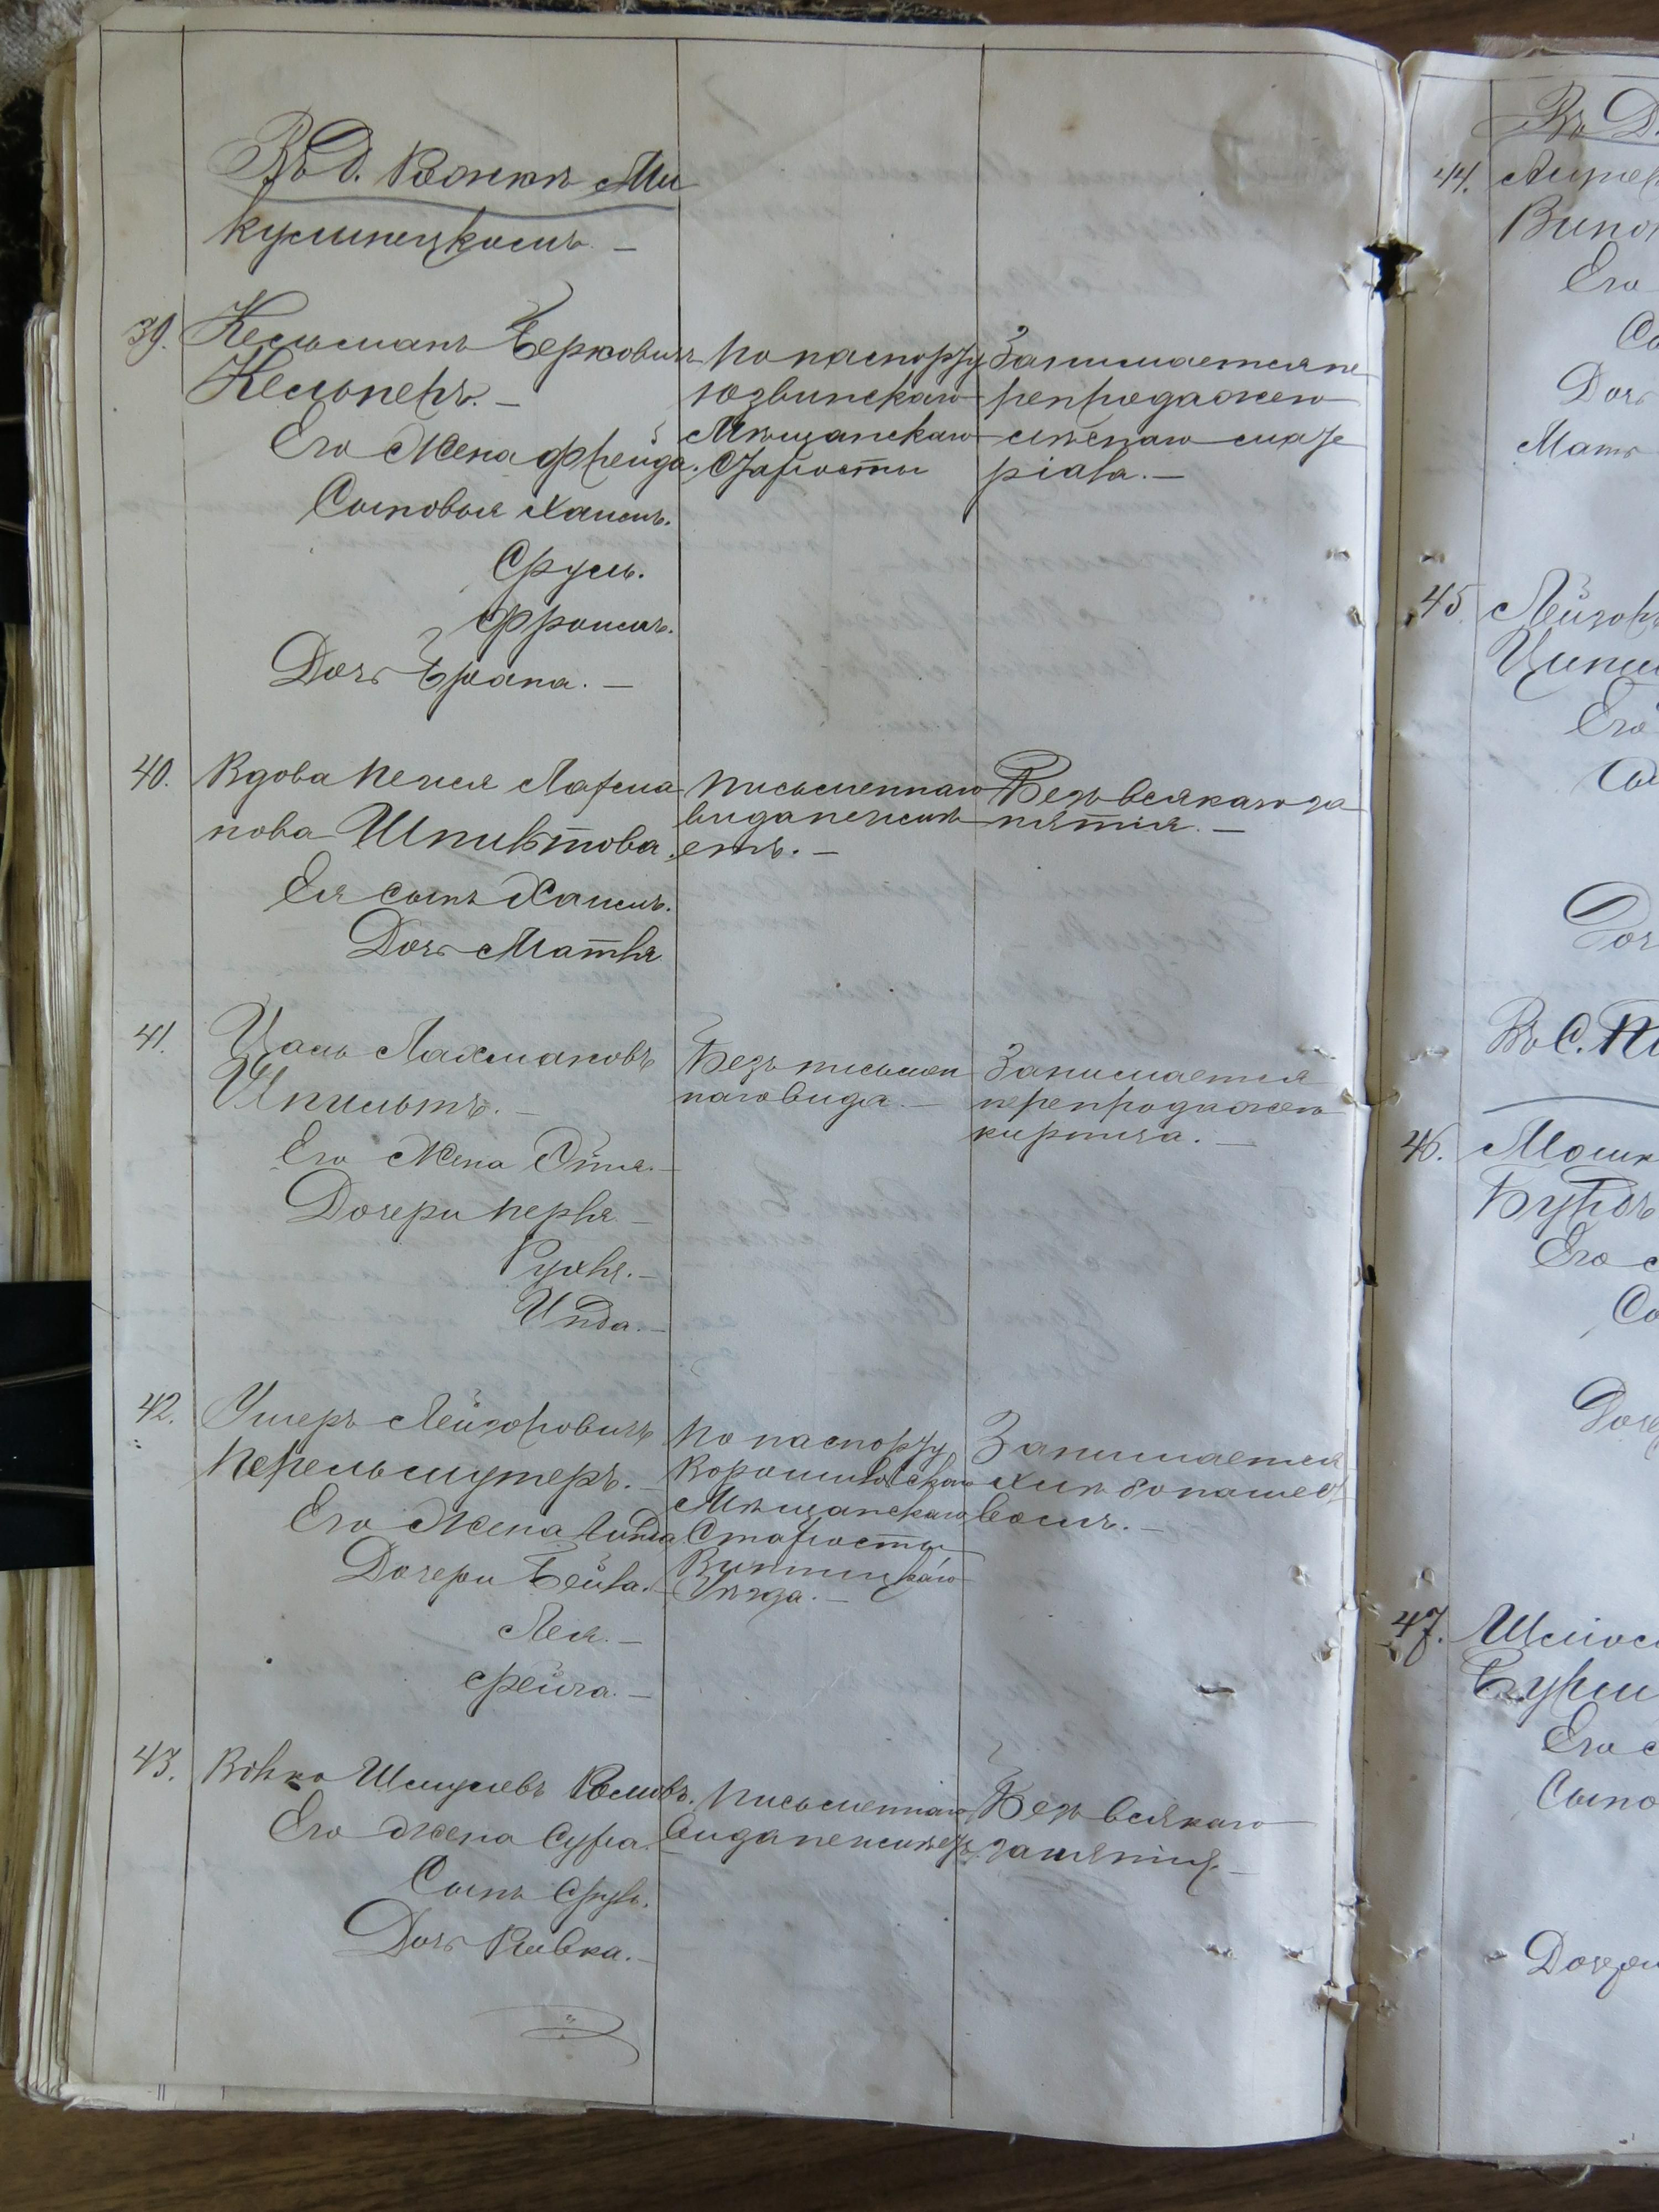 Въ д. Волкѣ Ми
кулинецкомъ. —
39. Кельманъ Берковичъ
Кельнеръ. —
Его Жена Фрейда.
Сыновья Хаимъ.
Сруль.
Фроимъ.
Дочь Брана. —
По паспорту
Юзвинскаго
Мѣщанскаго
Старосты
Занимается пе
репродажею
лѣснаго мате
ріала. —
40. Вдова Песя Лахма
нова Шпильтова.
Ея сынъ Хаимъ.
Дочь Матля
Письменнаго
вида неимѣ
етъ. —
Безъ всякаго за
нятія. —
41. Цаль Лахмановъ
Шпильтъ. —
Его Жена Этля. —
Дочери Перля —
Рухля. —
Инда. —
Безъ письмен
наго вида. —
Занимается
перепродажею
кирпича. —
42. Ушеръ Лейзоровичъ
Перельмутеръ. —
Его Жена
Дочери Бейла. —
Лея. —
Фейга. —
По паспорту
Ворошиловскаго
Мѣщанскаго
Старосты
Винницкаго
Уѣзда. —
Занимается
хлѣбопашест
вомъ. —
43. Волько Шмулевъ
Его жена Сура.
Сынъ Сруль.
Дочь Ривка. —
Письменнаго
вида неимѣетъ
Безъ всякаго
занятія. —
44.
Его
Дочь
Мать
45. Лейзоръ
Его
Дочь
Въ С.
46. Мошко
Его
47.
Его
Дочери